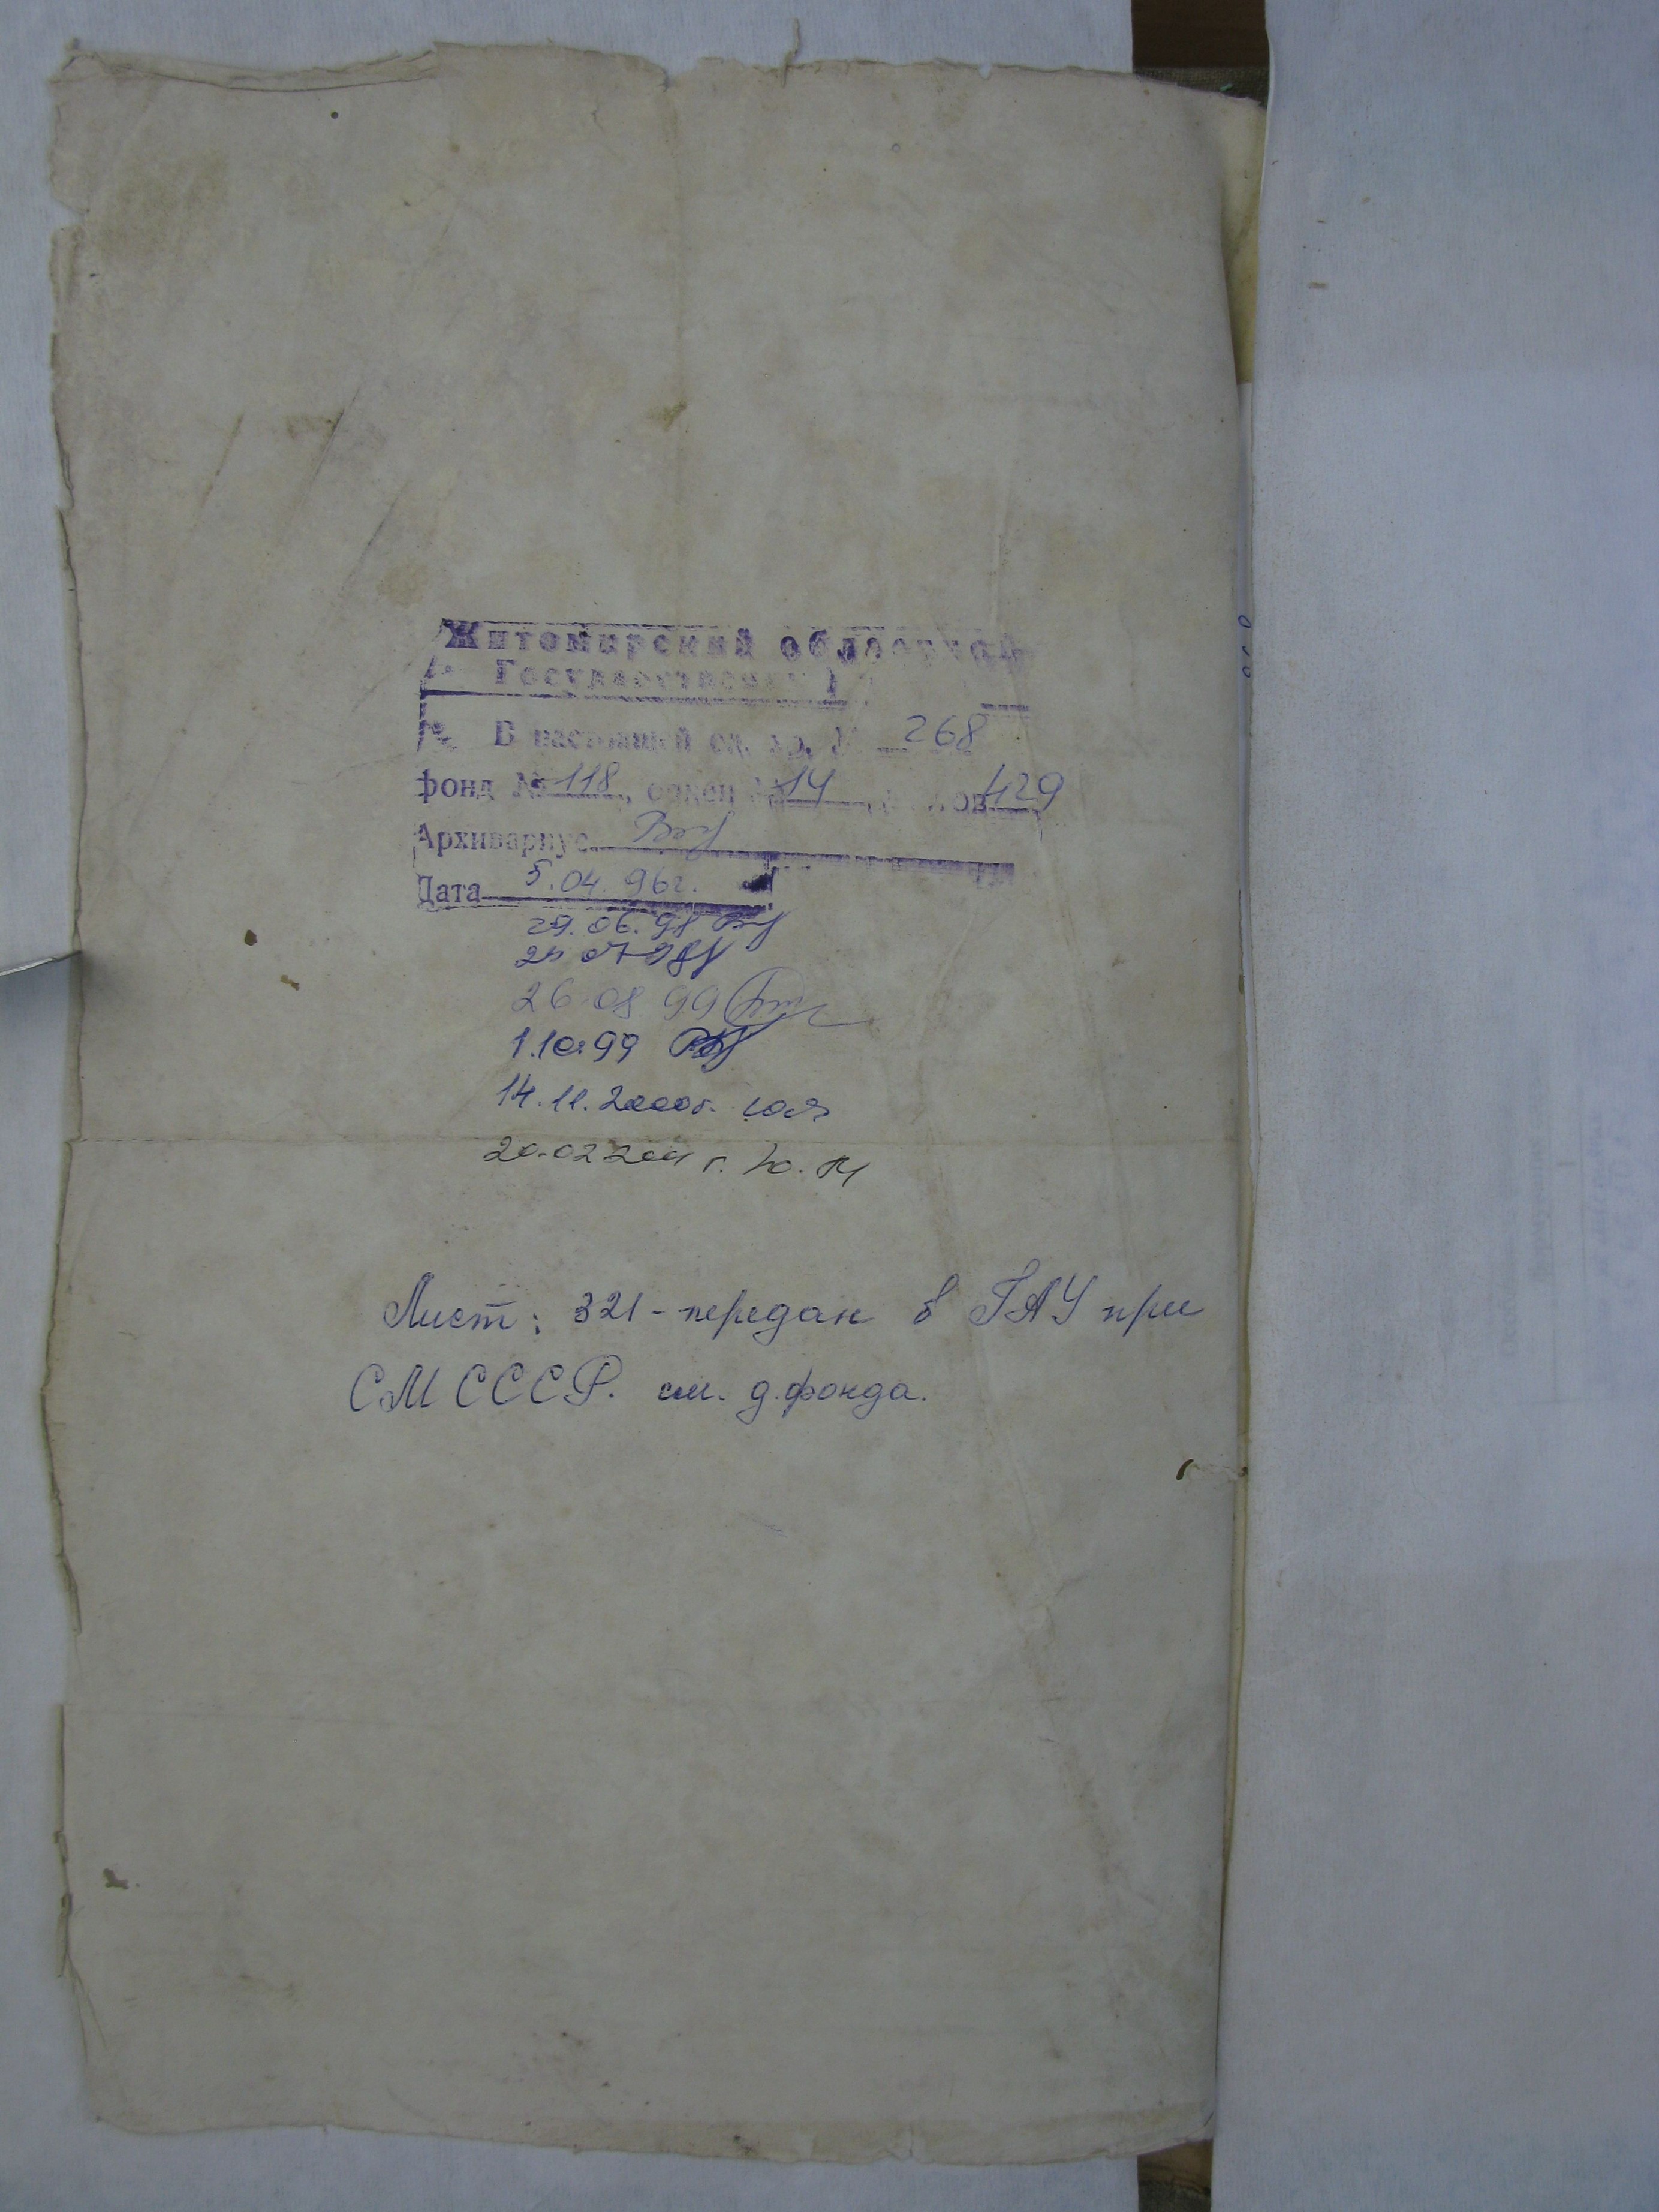 Житомирский областной
Государственный
В настоящей ед. хр. № 268
фонд № 118, описи № 14, листов 429
Архивариус
Дата 5.04.96г.
29.06.98
26 08 99
1.10.99
14.11.2000г.
Лист: 321 - передан в ГАУ при
СМ СССР. см. д. фонда.